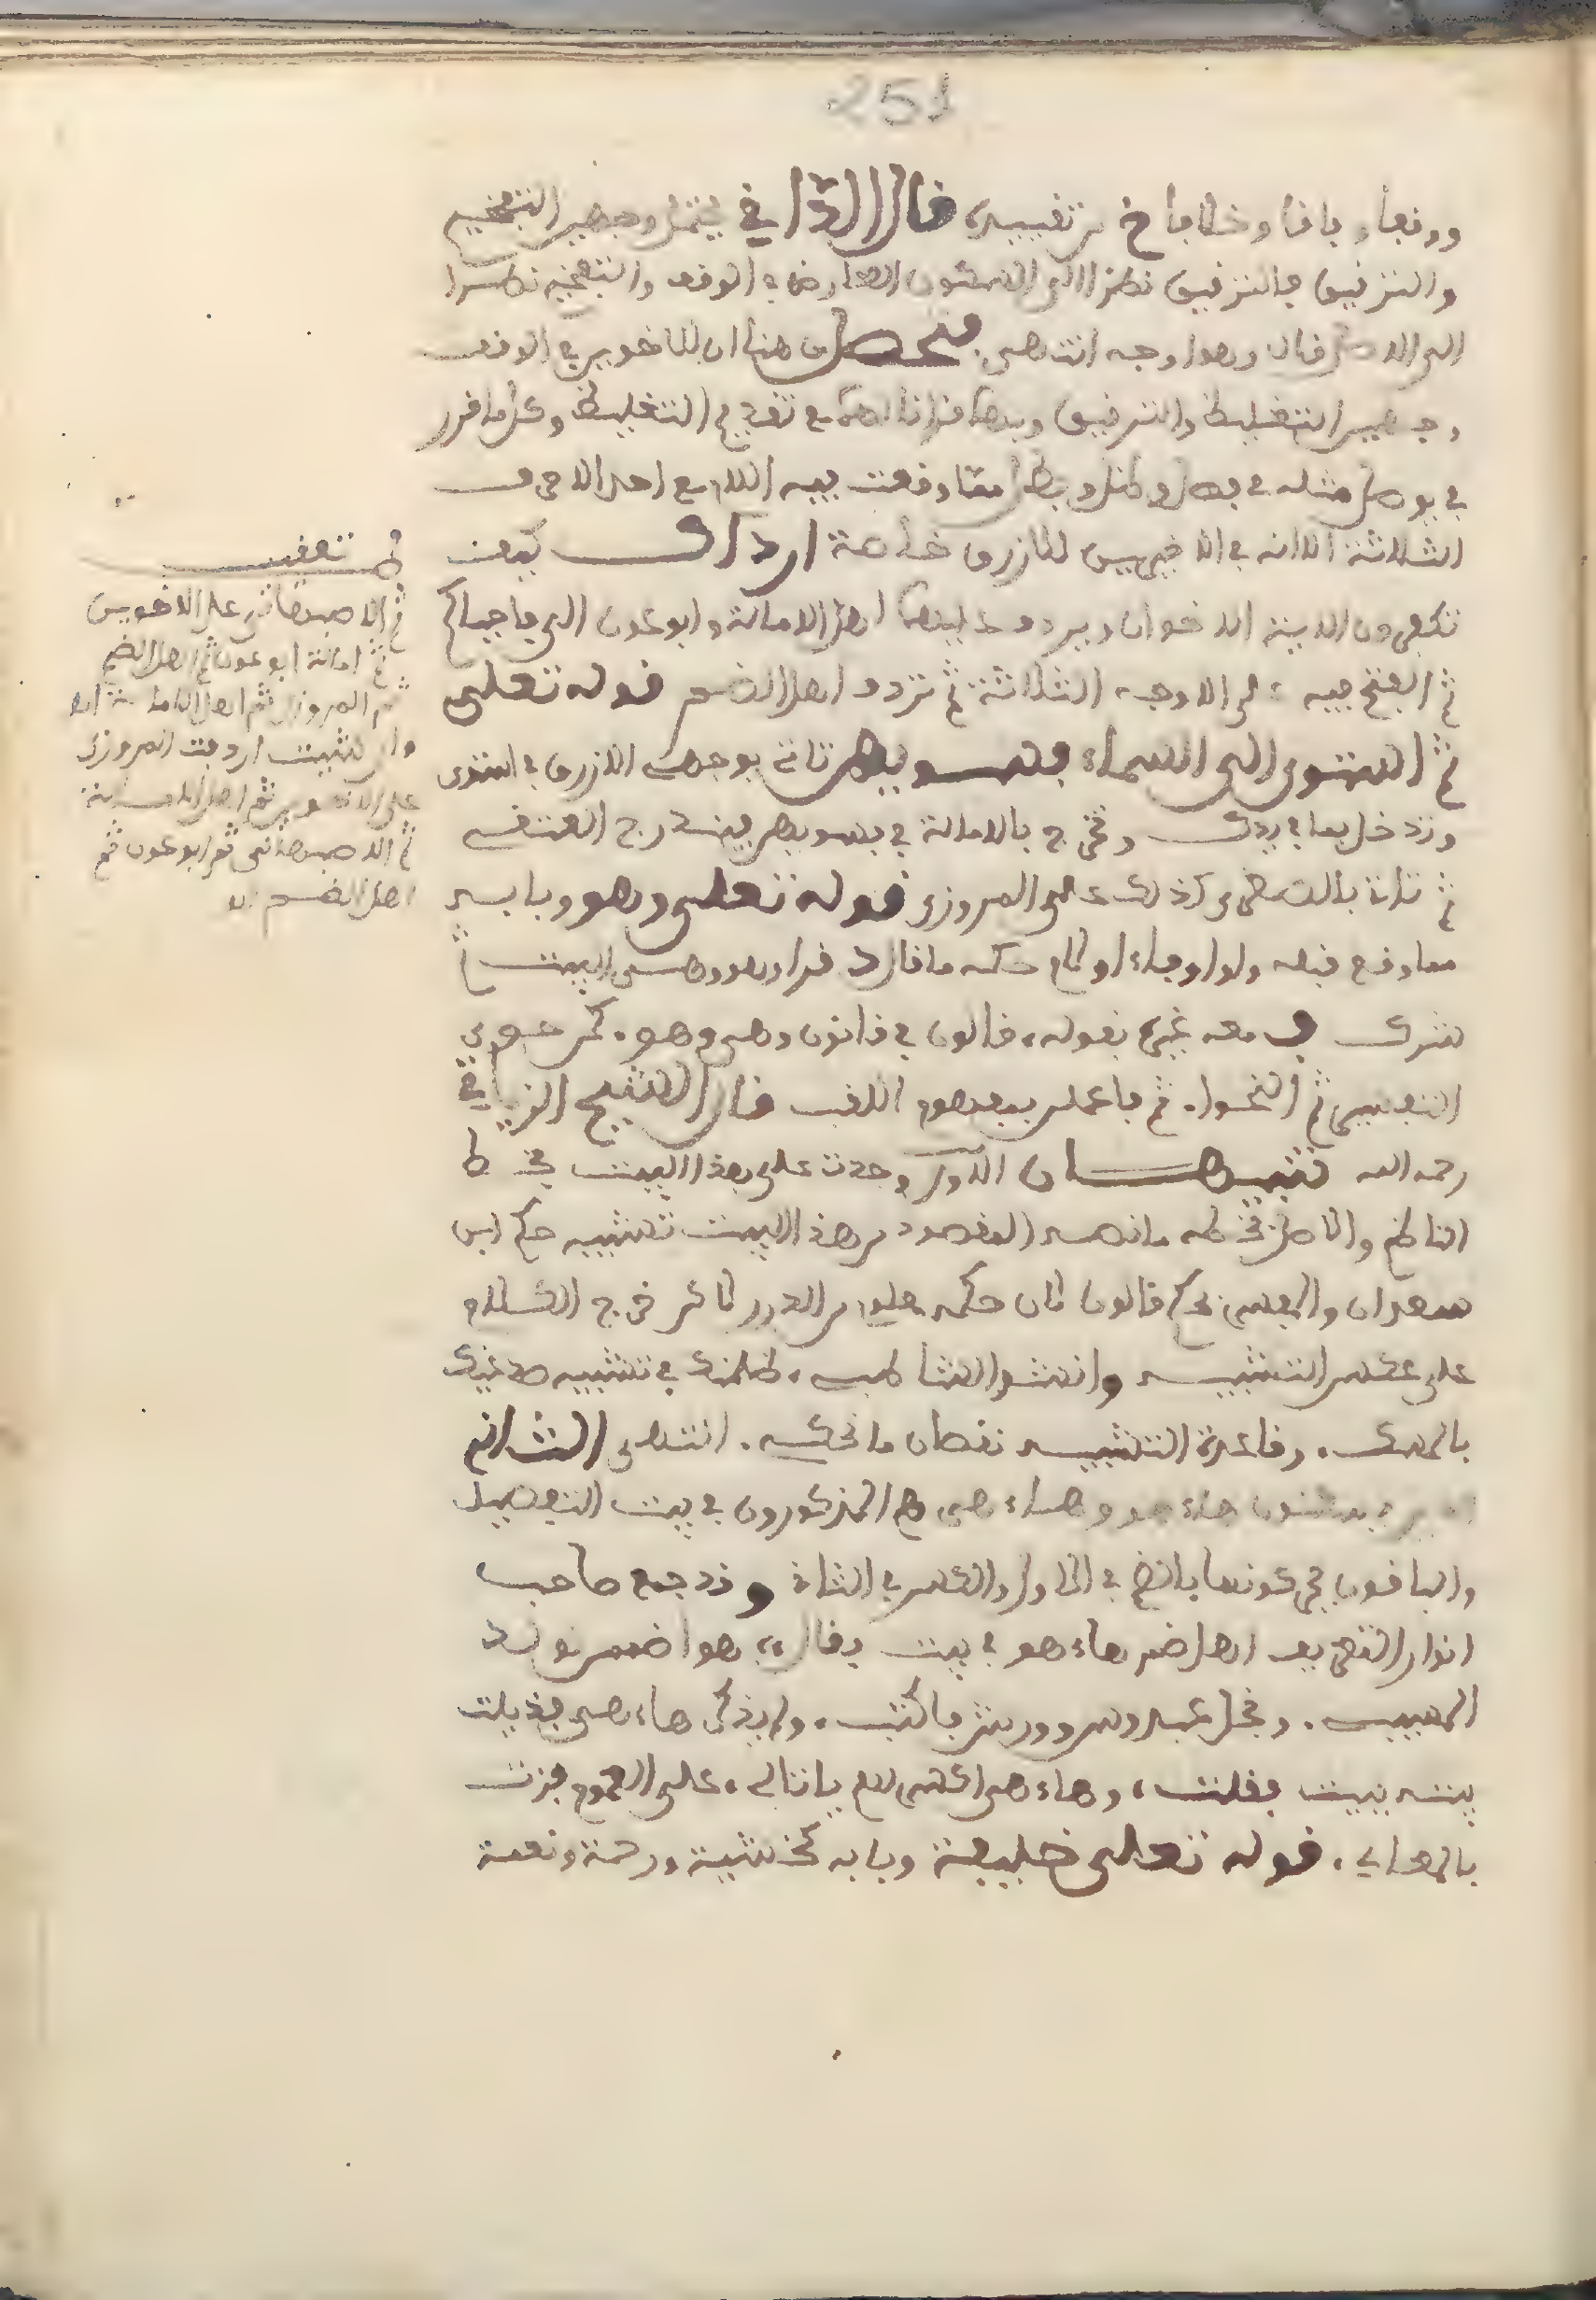 251
قال الداني يحتمل وجهين التفخيم
والترقيق فالترقيق نظرا الى السكون العارض في الوقف والتفخيم نظرا
الى الاصل قال وهوا وجه انتهى فتحصل من هنا ان للاخوين في الوقف
وجهين التغليظ والترقيق وبهما قرانا لهما مع تقديم التغليظ وكل ما قرر
في يوصل مثله في فصل وظل وبطل مما وقعت فيه اللام مع احد الاحرف
الثلاثة الا انه في الاخيرين للازرق خاصة ارداف كيف
تكفرون لمدينة الاخوان ويردف عليهما اهل الامالة وابو عون الى فاحياكم
ثم الفتح فيه على الاوجه الثلاثة ثم تردف اهل الضم قوله تعلى
ثم استوى الى السماء فسويهن تاتي بوجهي الازرق في استوى
وتدخل بها في يردف وتخرج بالامالة في فسويهن فيندرج العتقي
ثم تاتي بالصغرى كذلك على المروزي قوله تعلى وهو وبابه
مما وقع قبله واو او فاء او لام حكمه ما قال د قرا وهو وهي البيت
شرك في معه غيره بقوله، قالون في قانون وهي وهو.
التفسير ثم النحوا. ثم فاعلن ببعدهم اللقب قال الشيخ الزياتي
رحمه الله تنبيهان الاول وجدت على هذا البيت بخط
الناظم والاصل بخطه ما نصه المقصود من هذا البيت تشبيه حكم ابن
سعدان والمفسر بحكم قالون لان حكمه علم من الدرر لاكن خرج الكلام
على عكس التشبيه وانشدوا لشاطب، ظلمتك في تشبيه صدغيك
بالمسك. وقاعدة التشبيه نقصان ما يحكيه. انتهى الثاني
يسكنون هاء هو وهاء هي هم المذكورون في بيت التفصيل
والباقون يحركونها بالضم في الاول والكسر في الثاني وقد جمع صاحب
انوار التعريف اهل ضم هاء هو في بيت فقال،، هوا ضمم نولد
المسيب. ونجل عبدوس وورش فاكتب، ولم يذكر هاء هي فذيلت
بيته ببيت فقلت، وهاء هي اكسر لهم يا تالي، على العموم فزت
بالمعالي، قوله تعلى خليفة وبابه كخشية ورحمة ونعمة
تعقب
ثم الاصبهاني على الاخوين
ثم امالة ابو عون ثم اهل الضم
ثم المروزي ثم اهل الامالة
وان شئت اردفت المروزي
على الاخوين ثم اهل الامالة
ثم الاصبهاني ثم ابو عون ثم
اهل الضم